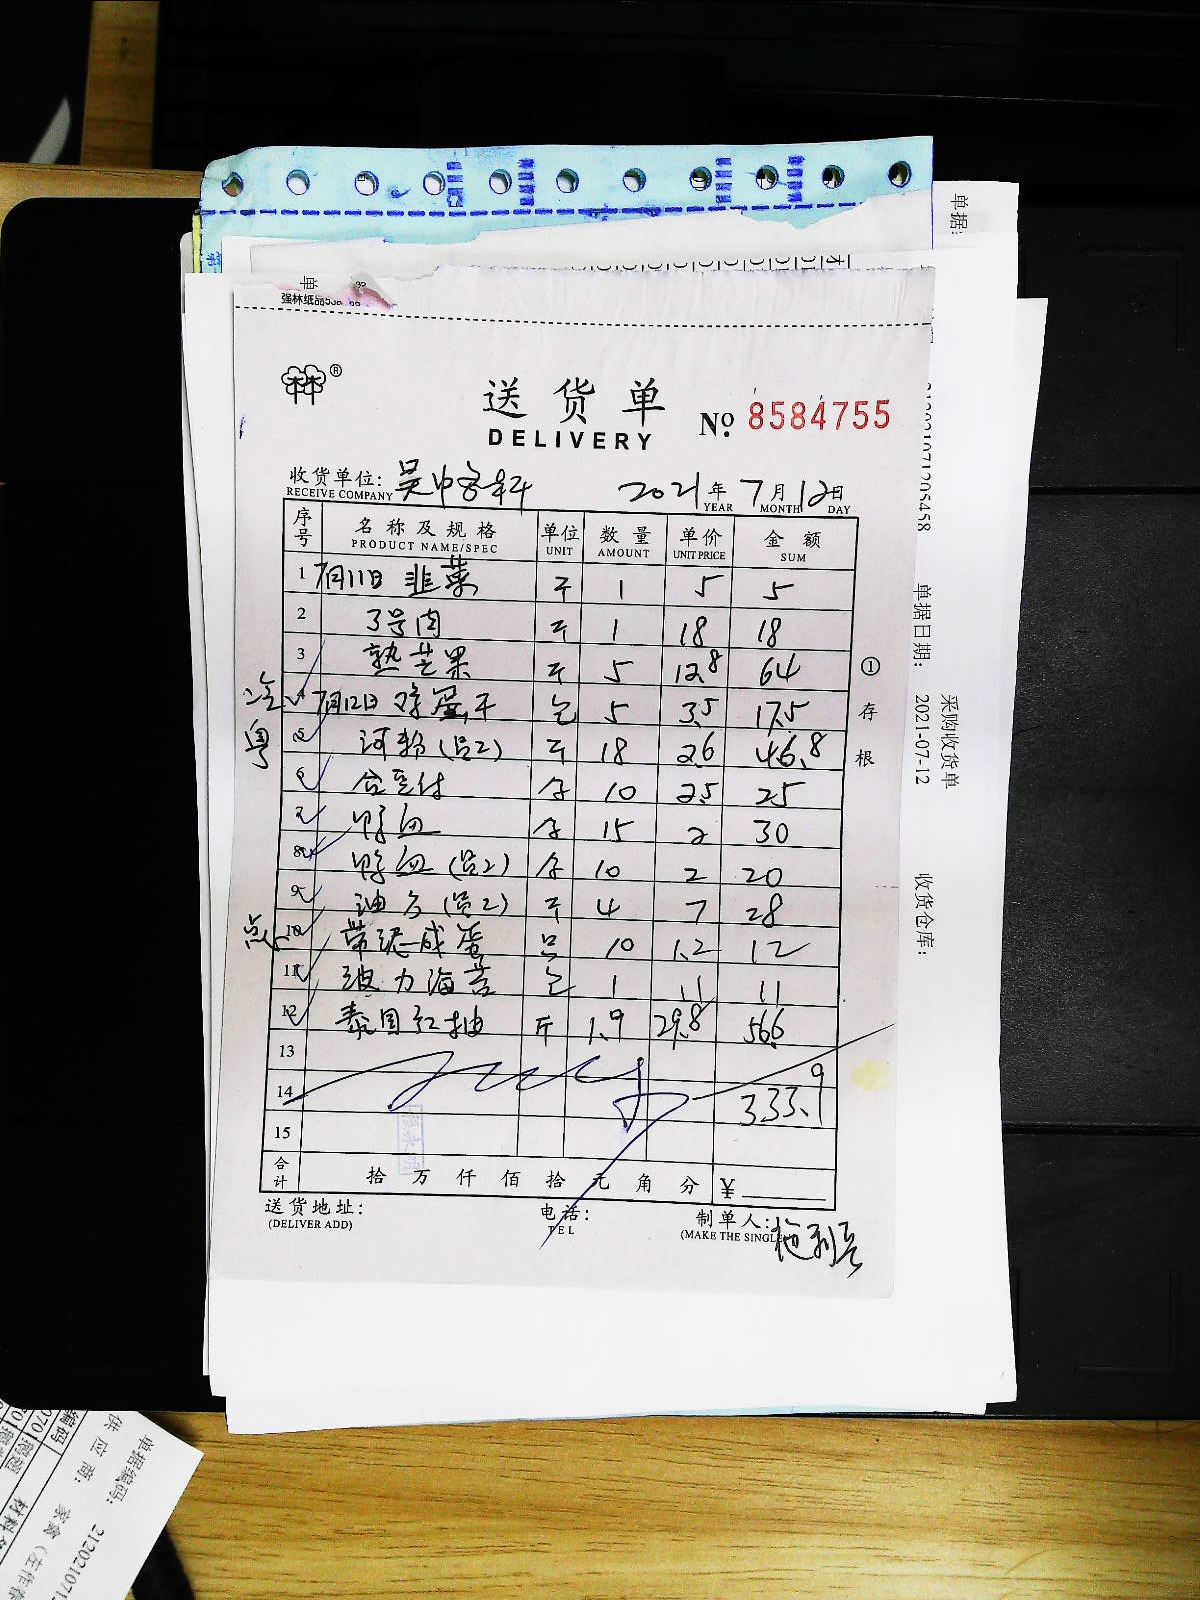 单据:
单
强林纸品
®
送货单
DELIVERY
No. 8584755
收货单位: 吴中客轩 2021年7月12日
RECEIVE COMPANY YEAR MONTH DAY
序号 名称及规格 单位 数量 单价 金额
PRODUCT NAME/SPEC UNIT AMOUNT UNIT PRICE SUM
1 7月11日 韭菜 斤 1 5 5
2 3号肉 斤 1 18 18
3 熟芒果 斤 5 12.8 64
4 7月12日 鸡蛋干 包 5 3.5 17.5
粤
5 河粉(员2) 斤 18 2.6 46.8
6 合豆付 合 10 2.5 25
7 鸭血 合 15 2 30
8 鸭血(员2) 合 10 2 20
9 油方(员2) 斤 4 7 28
点
10 带泥咸蛋 只 10 1.2 12
11 波力海苔 包 1 11 11
12 泰国红抽 斤 1.9 29.8 56.6
13
14 333.9
15
合计 拾 万 仟 佰 拾 元 角 分 ¥
送货地址: 电话: 制单人:
(DELIVER ADD) TEL (MAKE THE SINGLE
① 存根
采购收货单
单据日期: 2021-07-12 收货仓库:
单据编码: 212021071
供应商: 家禽
编码
材料